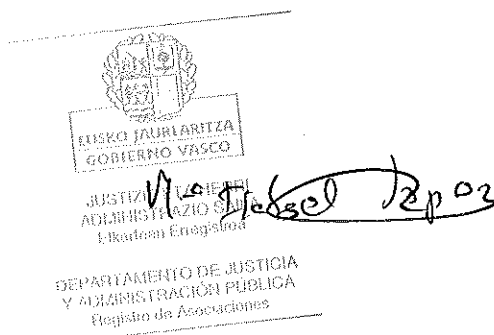 EUSKO JAURLARITZA
GOBIERNO VASCO
JUSTIZIA
ADMINISTRAZIO SAILA
Elkarteen Erregistroa
Mª Isabel
DEPARTAMENTO DE JUSTICIA
Y ADMINISTRACIÓN PÚBLICA
Registro de Asociaciones